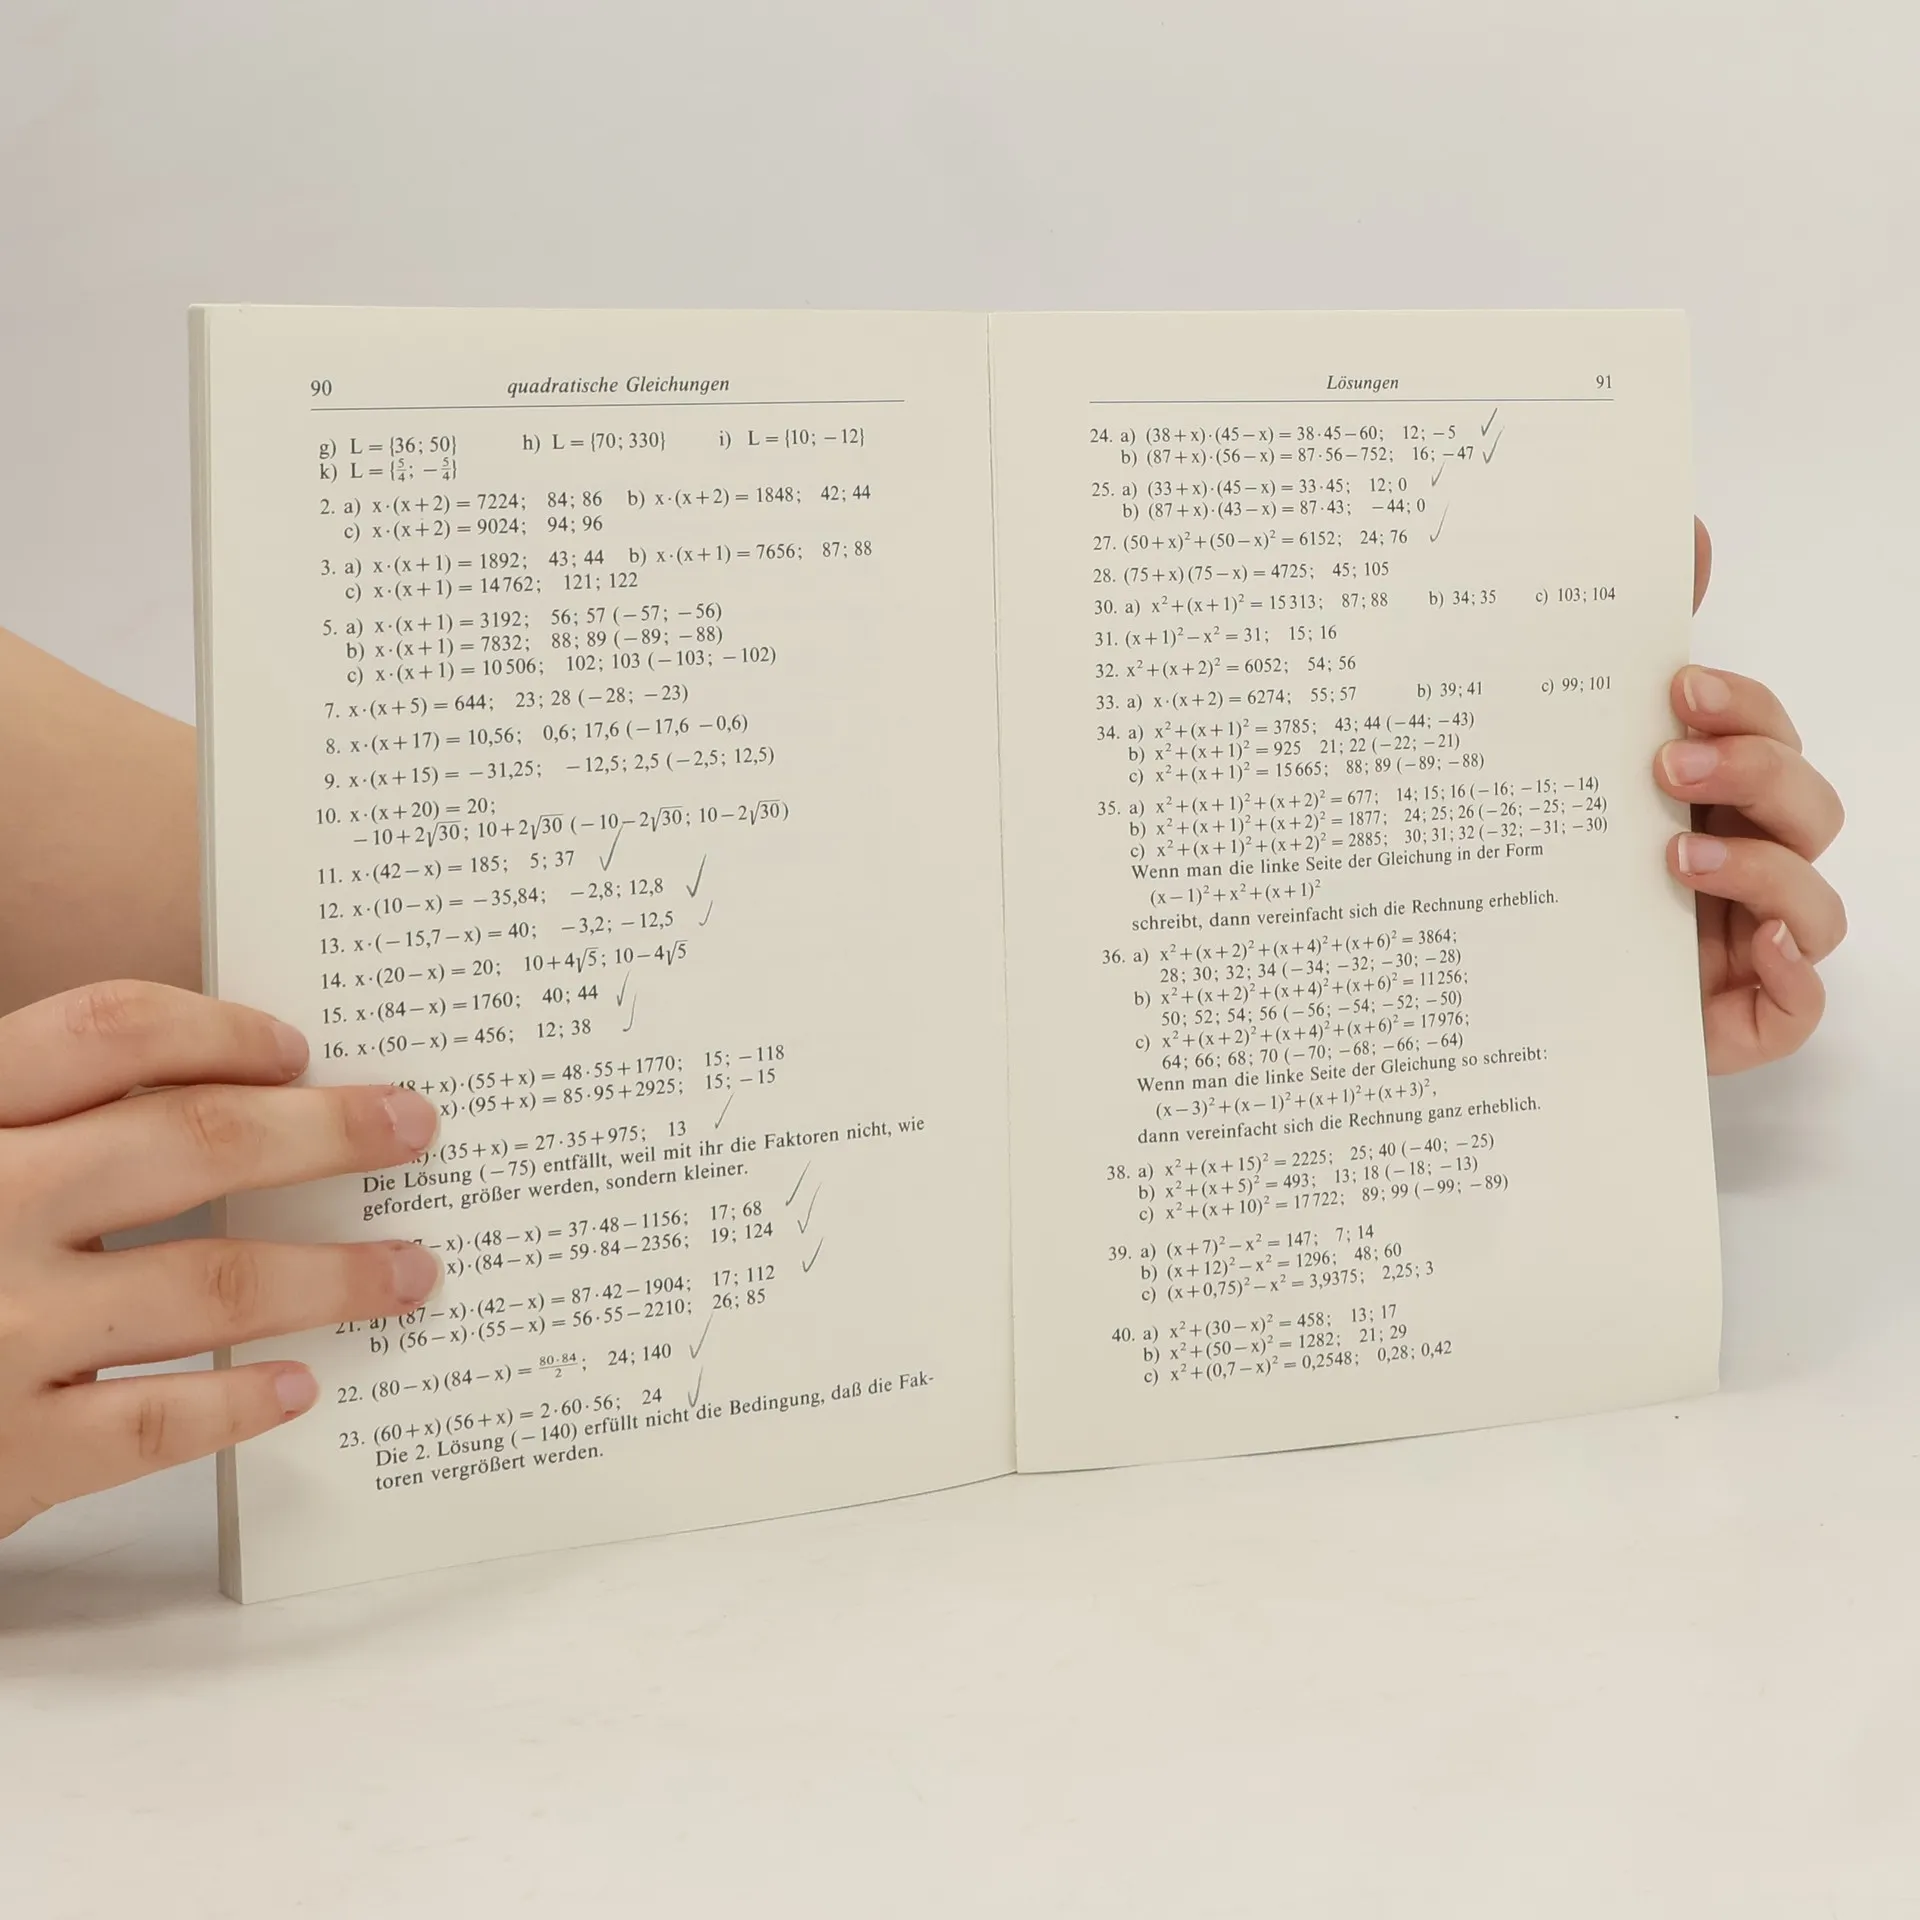 90 quadratische Gleichungen
g) L = {36; 50} h) L = {70; 330} i) L = {10; −12}
k) L = {5/4; −5/4}
2. a) x·(x+2) = 7224; 84; 86 b) x·(x+2) = 1848; 42; 44
c) x·(x+2) = 9024; 94; 96
3. a) x·(x+1) = 1892; 43; 44 b) x·(x+1) = 7656; 87; 88
c) x·(x+1) = 14762; 121; 122
5. a) x·(x+1) = 3192; 56; 57 (−57; −56)
b) x·(x+1) = 7832; 88; 89 (−89; −88)
c) x·(x+1) = 10506; 102; 103 (−103; −102)
7. x·(x+5) = 644; 23; 28 (−28; −23)
8. x·(x+17) = 10,56; 0,6; 17,6 (−17,6 −0,6)
9. x·(x+15) = −31,25; −12,5; 2,5 (−2,5; 12,5)
10. x·(x+20) = 20;
−10+2√30; 10+2√30 (−10−2√30; 10−2√30)
11. x·(42−x) = 185; 5; 37
12. x·(10−x) = −35,84; −2,8; 12,8
13. x·(−15,7−x) = 40; −3,2; −12,5
14. x·(20−x) = 20; 10+4√5; 10−4√5
15. x·(84−x) = 1760; 40; 44
16. x·(50−x) = 456; 12; 38
48+x)·(55+x) = 48·55+1770; 15; −118
x)·(95+x) = 85·95+2925; 15; −15
x)·(35+x) = 27·35+975; 13
Die Lösung (−75) entfällt, weil mit ihr die Faktoren nicht, wie
gefordert, größer werden, sondern kleiner.
−x)·(48−x) = 37·48−1156; 17; 68
x)·(84−x) = 59·84−2356; 19; 124
21. a) (87−x)·(42−x) = 87·42−1904; 17; 112
b) (56−x)·(55−x) = 56·55−2210; 26; 85
22. (80−x)(84−x) = 80·84/2; 24; 140
23. (60+x)(56+x) = 2·60·56; 24
Die 2. Lösung (−140) erfüllt nicht die Bedingung, daß die Fak-
toren vergrößert werden.
Lösungen 91
24. a) (38+x)·(45−x) = 38·45−60; 12; −5
b) (87+x)·(56−x) = 87·56−752; 16; −47
25. a) (33+x)·(45−x) = 33·45; 12; 0
b) (87+x)·(43−x) = 87·43; −44; 0
27. (50+x)²+(50−x)² = 6152; 24; 76
28. (75+x)(75−x) = 4725; 45; 105
30. a) x²+(x+1)² = 15313; 87; 88 b) 34; 35 c) 103; 104
31. (x+1)²−x² = 31; 15; 16
32. x²+(x+2)² = 6052; 54; 56
33. a) x·(x+2) = 6274; 55; 57 b) 39; 41 c) 99; 101
34. a) x²+(x+1)² = 3785; 43; 44 (−44; −43)
b) x²+(x+1)² = 925 21; 22 (−22; −21)
c) x²+(x+1)² = 15665; 88; 89 (−89; −88)
35. a) x²+(x+1)²+(x+2)² = 677; 14; 15; 16 (−16; −15; −14)
b) x²+(x+1)²+(x+2)² = 1877; 24; 25; 26 (−26; −25; −24)
c) x²+(x+1)²+(x+2)² = 2885; 30; 31; 32 (−32; −31; −30)
Wenn man die linke Seite der Gleichung in der Form
(x−1)²+x²+(x+1)²
schreibt, dann vereinfacht sich die Rechnung erheblich.
36. a) x²+(x+2)²+(x+4)²+(x+6)² = 3864;
28; 30; 32; 34 (−34; −32; −30; −28)
b) x²+(x+2)²+(x+4)²+(x+6)² = 11256;
50; 52; 54; 56 (−56; −54; −52; −50)
c) x²+(x+2)²+(x+4)²+(x+6)² = 17976;
64; 66; 68; 70 (−70; −68; −66; −64)
Wenn man die linke Seite der Gleichung so schreibt:
(x−3)²+(x−1)²+(x+1)²+(x+3)²,
dann vereinfacht sich die Rechnung ganz erheblich.
38. a) x²+(x+15)² = 2225; 25; 40 (−40; −25)
b) x²+(x+5)² = 493; 13; 18 (−18; −13)
c) x²+(x+10)² = 17722; 89; 99 (−99; −89)
39. a) (x+7)²−x² = 147; 7; 14
b) (x+12)²−x² = 1296; 48; 60
c) (x+0,75)²−x² = 3,9375; 2,25; 3
40. a) x²+(30−x)² = 458; 13; 17
b) x²+(50−x)² = 1282; 21; 29
c) x²+(0,7−x)² = 0,2548; 0,28; 0,42